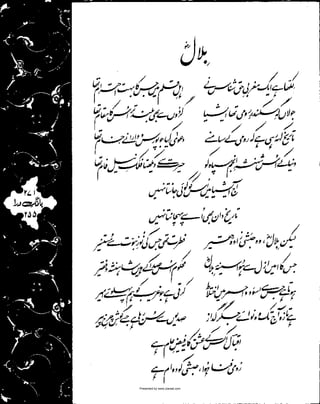 بلالؓ
لکھا ہے ایک مغربیِ حق شناس نے
اہلِ قلم میں جس کا بہت احترام تھا
جولاں گہِ سکندرِ رومی تھا ایشیا
گردوں سے بھی بلند تر اس کا مقام تھا
تاریخ کہہ رہی ہے کہ رومی کے سامنے
دعویٰ کیا جو پورس و دارا نے، خام تھا
دنیا کے اس شہنشہِ انجم سپاہ کو
حیرت سے دیکھتا فلکِ نیل فام تھا
آج ایشیا میں اس کو کوئی جانتا نہیں
تاریخ دان بھی اسے پہچانتا نہیں
لیکن بلالؓ، وہ حبشی زادۂ حقیر
فطرت تھی جس کی نورِ نبوت سے مستنیر
جس کا امیں ازل سے ہوا سینۂ بلالؓ
محکوم اس صدا کے ہیں شاہنشہ و فقیر
ہوتا ہے جس سے اسود و احمر میں اختلاط
کرتی ہے جو غریب کو ہم پہلوئے امیر
ہے تازہ آج تک وہ نوائے جگر گداز
صدیوں سے سن رہا ہے جسے گوشِ چرخِ پیر
اقبال! کس کے عشق کا یہ فیضِ عام ہے
رومی فنا ہوا، حبشی کو دوام ہے
۲۷۱
بانگِ درا
۲۵۵
Presented by www.ziaraat.com